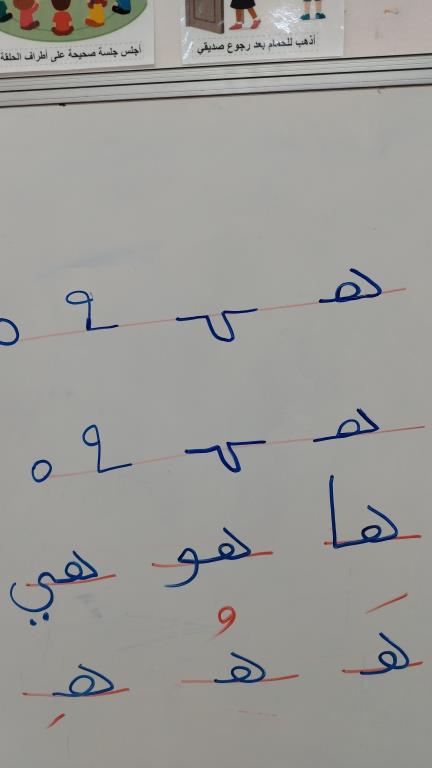 أذهب للحمام بعد رجوع صديقي
أجلس جلسة صحيحة على أطراف الحلقة
هـ ـهـ ـه ه
هـ ـهـ ـه ه
ها هو هي
هَـ هُـ هِـ